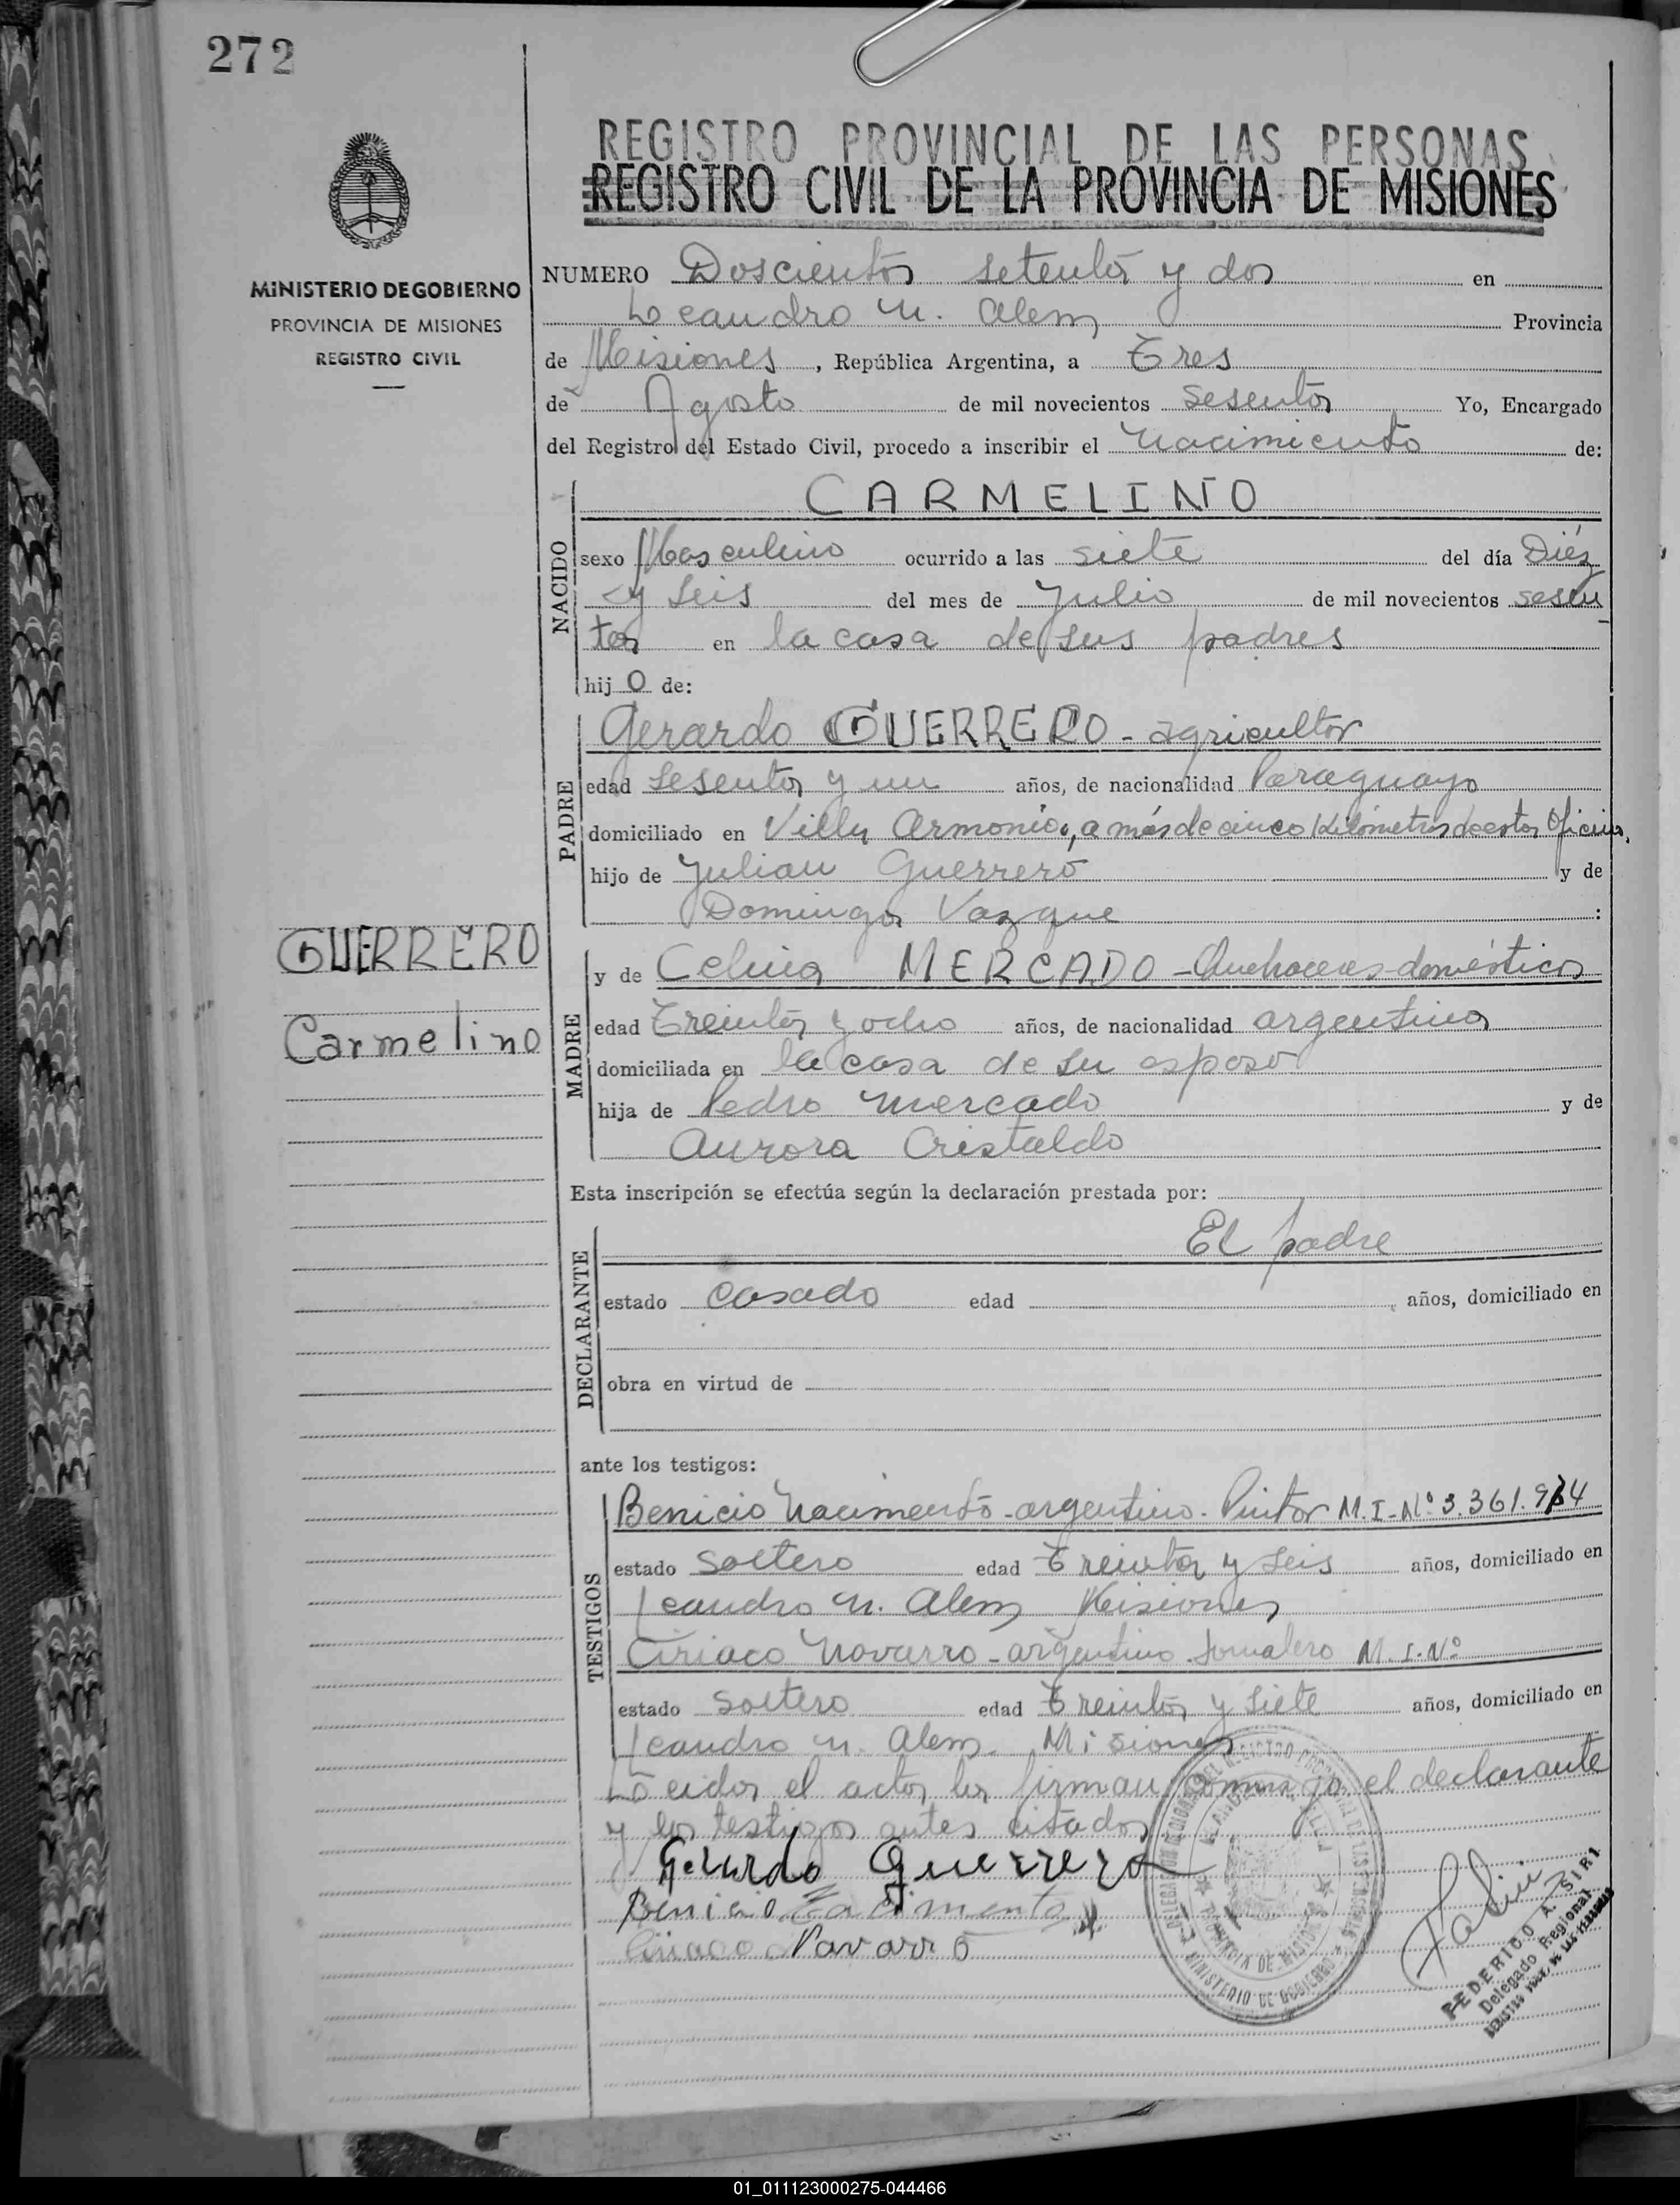 272
REGISTRO PROVINCIAL DE LAS PERSONAS
REGISTRO CIVIL DE LA PROVINCIA DE MISIONES
MINISTERIO DE GOBIERNO
PROVINCIA DE MISIONES
REGISTRO CIVIL
NUMERO Doscientos setenta y dos en
Leandro N. Alem Provincia
de Misiones, República Argentina, a Tres
de Agosto de mil novecientos sesenta Yo, Encargado
del Registro del Estado Civil, procedo a inscribir el Nacimiento de:
NACIDO
CARMELINO
sexo Masculino ocurrido a las siete del día Diéz
y seis del mes de Julio de mil novecientos sesen
ta en la casa de sus padres
hijo de:
PADRE
Gerardo GUERRERO - agricultor
edad sesenta y un años, de nacionalidad Paraguayo
domiciliado en Villa Armonia, a más de cinco Kilómetros de esta Oficina,
hijo de Julian Guerrero y de
Dominga Vazque :
GUERRERO
Carmelino
MADRE
y de Celina MERCADO - Quehaceres domésticos
edad Treinta y ocho años, de nacionalidad argentina
domiciliada en la casa de su esposo
hija de Pedro Mercado y de
Aurora Cristaldo
Esta inscripción se efectúa según la declaración prestada por:
DECLARANTE
El padre
estado casado edad años, domiciliado en
obra en virtud de
ante los testigos:
TESTIGOS
Benicio Nacimento - argentino - Pintor M.I-Nº 3.361.964
estado soltero edad Treinta y seis años, domiciliado en
Leandro N. Alem Misiones
Ciriaco Navarro - argentino - Jornalero M.I.Nº
estado soltero edad Treinta y siete años, domiciliado en
Leandro N. Alem. Misiones
Leida el acta, la firman conmigo el declarante
y los testigos antes citados
Gerardo Guerrero
Benicio Nacimento
Ciriaco Navarro
PROVINCIA DE MISIONES
MINISTERIO DE GOBIERNO
FEDERICO A. SIRI
Delegado Regional
REGISTRO PROV. DE LAS PERSONAS
01_011123000275-044466